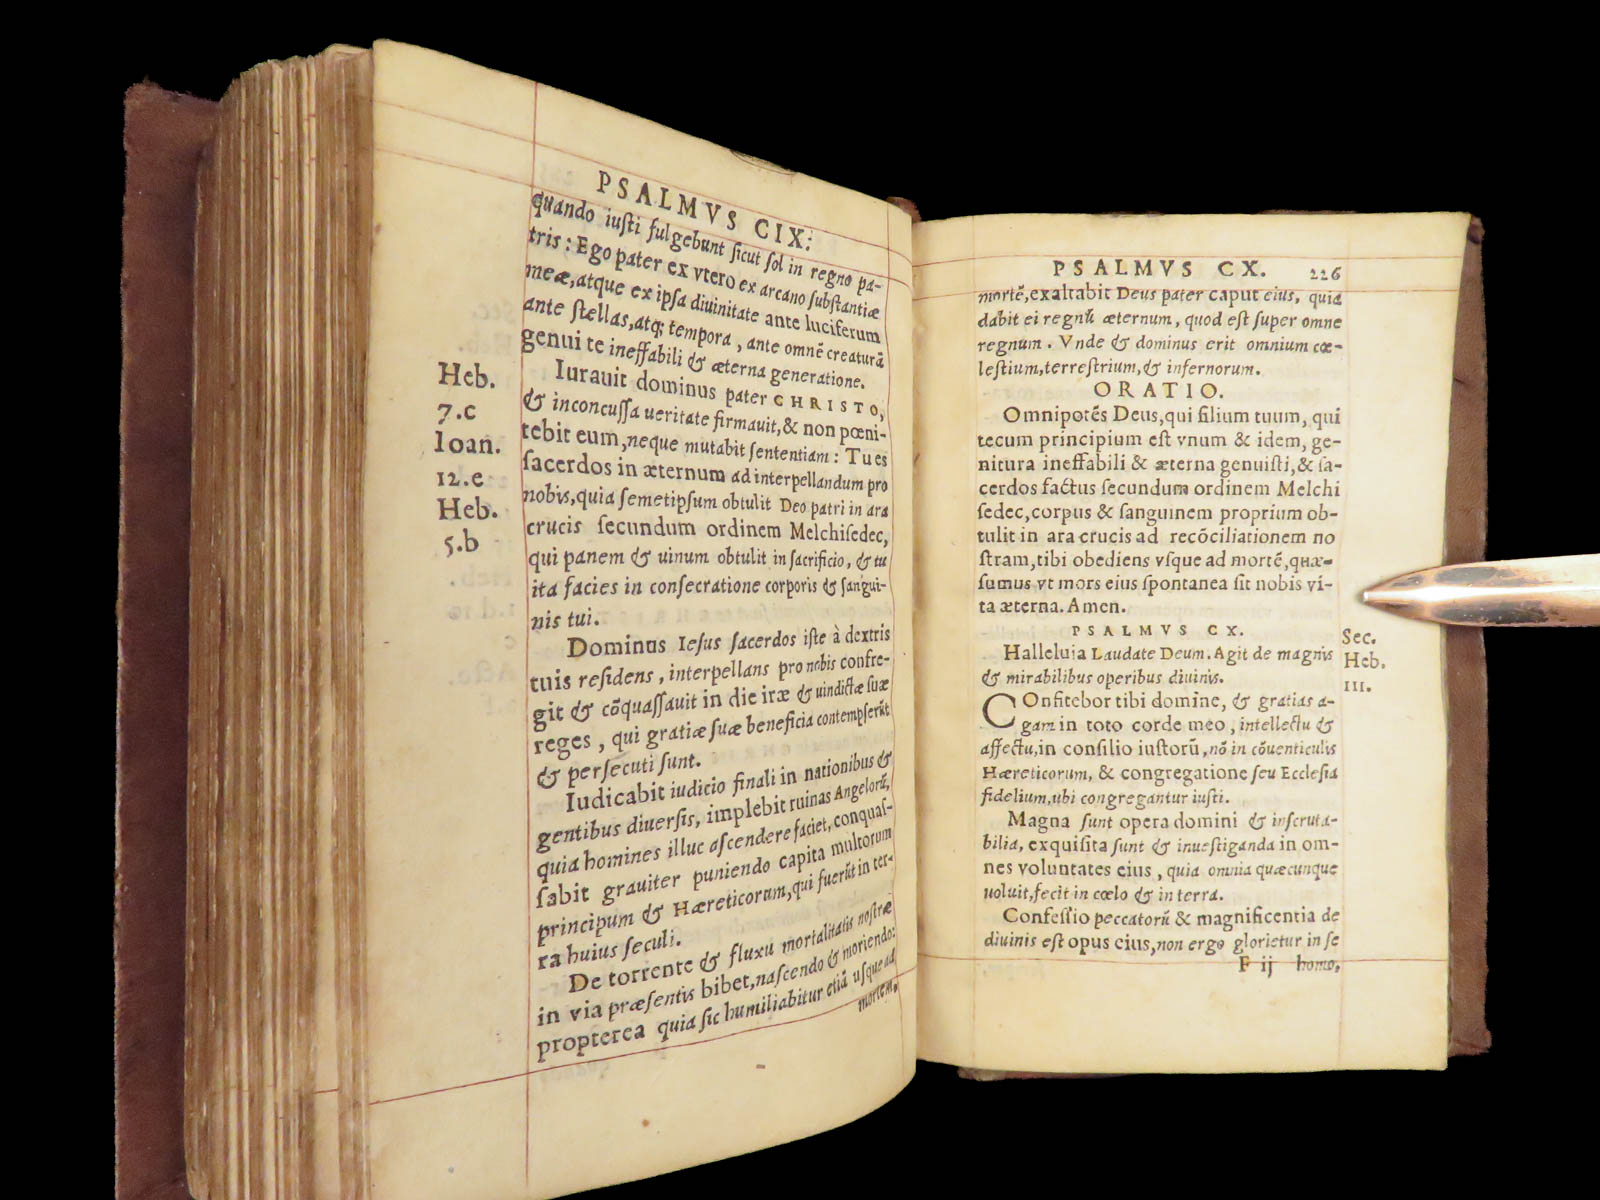 PSALMVS CIX.
quando iusti fulgebunt sicut sol in regno pa-
tris: Ego pater ex vtero ex arcano substantiæ
meæ, atque ex ipsa diuinitate ante luciferum
ante stellas, atq; tempora, ante omnē creaturā
genui te ineffabili & æterna generatione.
Heb.
7.c
Ioan.
12.e
Heb.
5.b
Iurauit dominus pater CHRISTO,
& inconcussa ueritate firmauit, & non pœni-
tebit eum, neque mutabit sententiam: Tu es
sacerdos in æternum ad interpellandum pro
nobis, quia semetipsum obtulit Deo patri in ara
crucis secundum ordinem Melchisedec,
qui panem & uinum obtulit in sacrificio, & tu
ita facies in consecratione corporis & sangui-
nis tui.
Dominus Iesus sacerdos iste à dextris
tuis residens, interpellans pro nobis confre-
git & cōquassauit in die iræ & uindictæ suæ
reges, qui gratiæ suæ beneficia contempserūt
& persecuti sunt.
Iudicabit iudicio finali in nationibus &
gentibus diuersis, implebit ruinas Angelorū,
quia homines illuc ascendere faciet, conquas-
sabit grauiter puniendo capita multorum
principum & Hæreticorum, qui fuerūt in ter-
ra huius seculi.
De torrente & fluxu mortalitatis nostræ
in via præsentis bibet, nascendo & moriendo:
propterea quia sic humiliabitur etiā usque ad
mortem,
PSALMVS CX. 226
mortē, exaltabit Deus pater caput eius, quia
dabit ei regnū æternum, quod est super omne
regnum. Vnde & dominus erit omnium cœ-
lestium, terrestrium, & infernorum.
ORATIO.
Omnipotēs Deus, qui filium tuum, qui
tecum principium est vnum & idem, ge-
nitura ineffabili & æterna genuisti, & sa-
cerdos factus secundum ordinem Melchi
sedec, corpus & sanguinem proprium ob-
tulit in ara crucis ad recōciliationem no
stram, tibi obediens vsque ad mortē, quæ-
sumus vt mors eius spontanea sit nobis vi-
ta æterna. Amen.
PSALMVS CX.
Sec.
Heb.
III.
Halleluia Laudate Deum. Agit de magnis
& mirabilibus operibus diuinis.
COnfitebor tibi domine, & gratias a-
gam in toto corde meo, intellectu &
affectu, in consilio iustorū, nō in cōuenticulis
Hæreticorum, & congregatione seu Ecclesia
fidelium, ubi congregantur iusti.
Magna sunt opera domini & inscruta-
bilia, exquisita sunt & inuestiganda in om-
nes voluntates eius, quia omnia quæcunque
uoluit, fecit in cœlo & in terra.
Confessio peccatorū & magnificentia de
diuinis est opus eius, non ergo glorietur in se
F ij homo,